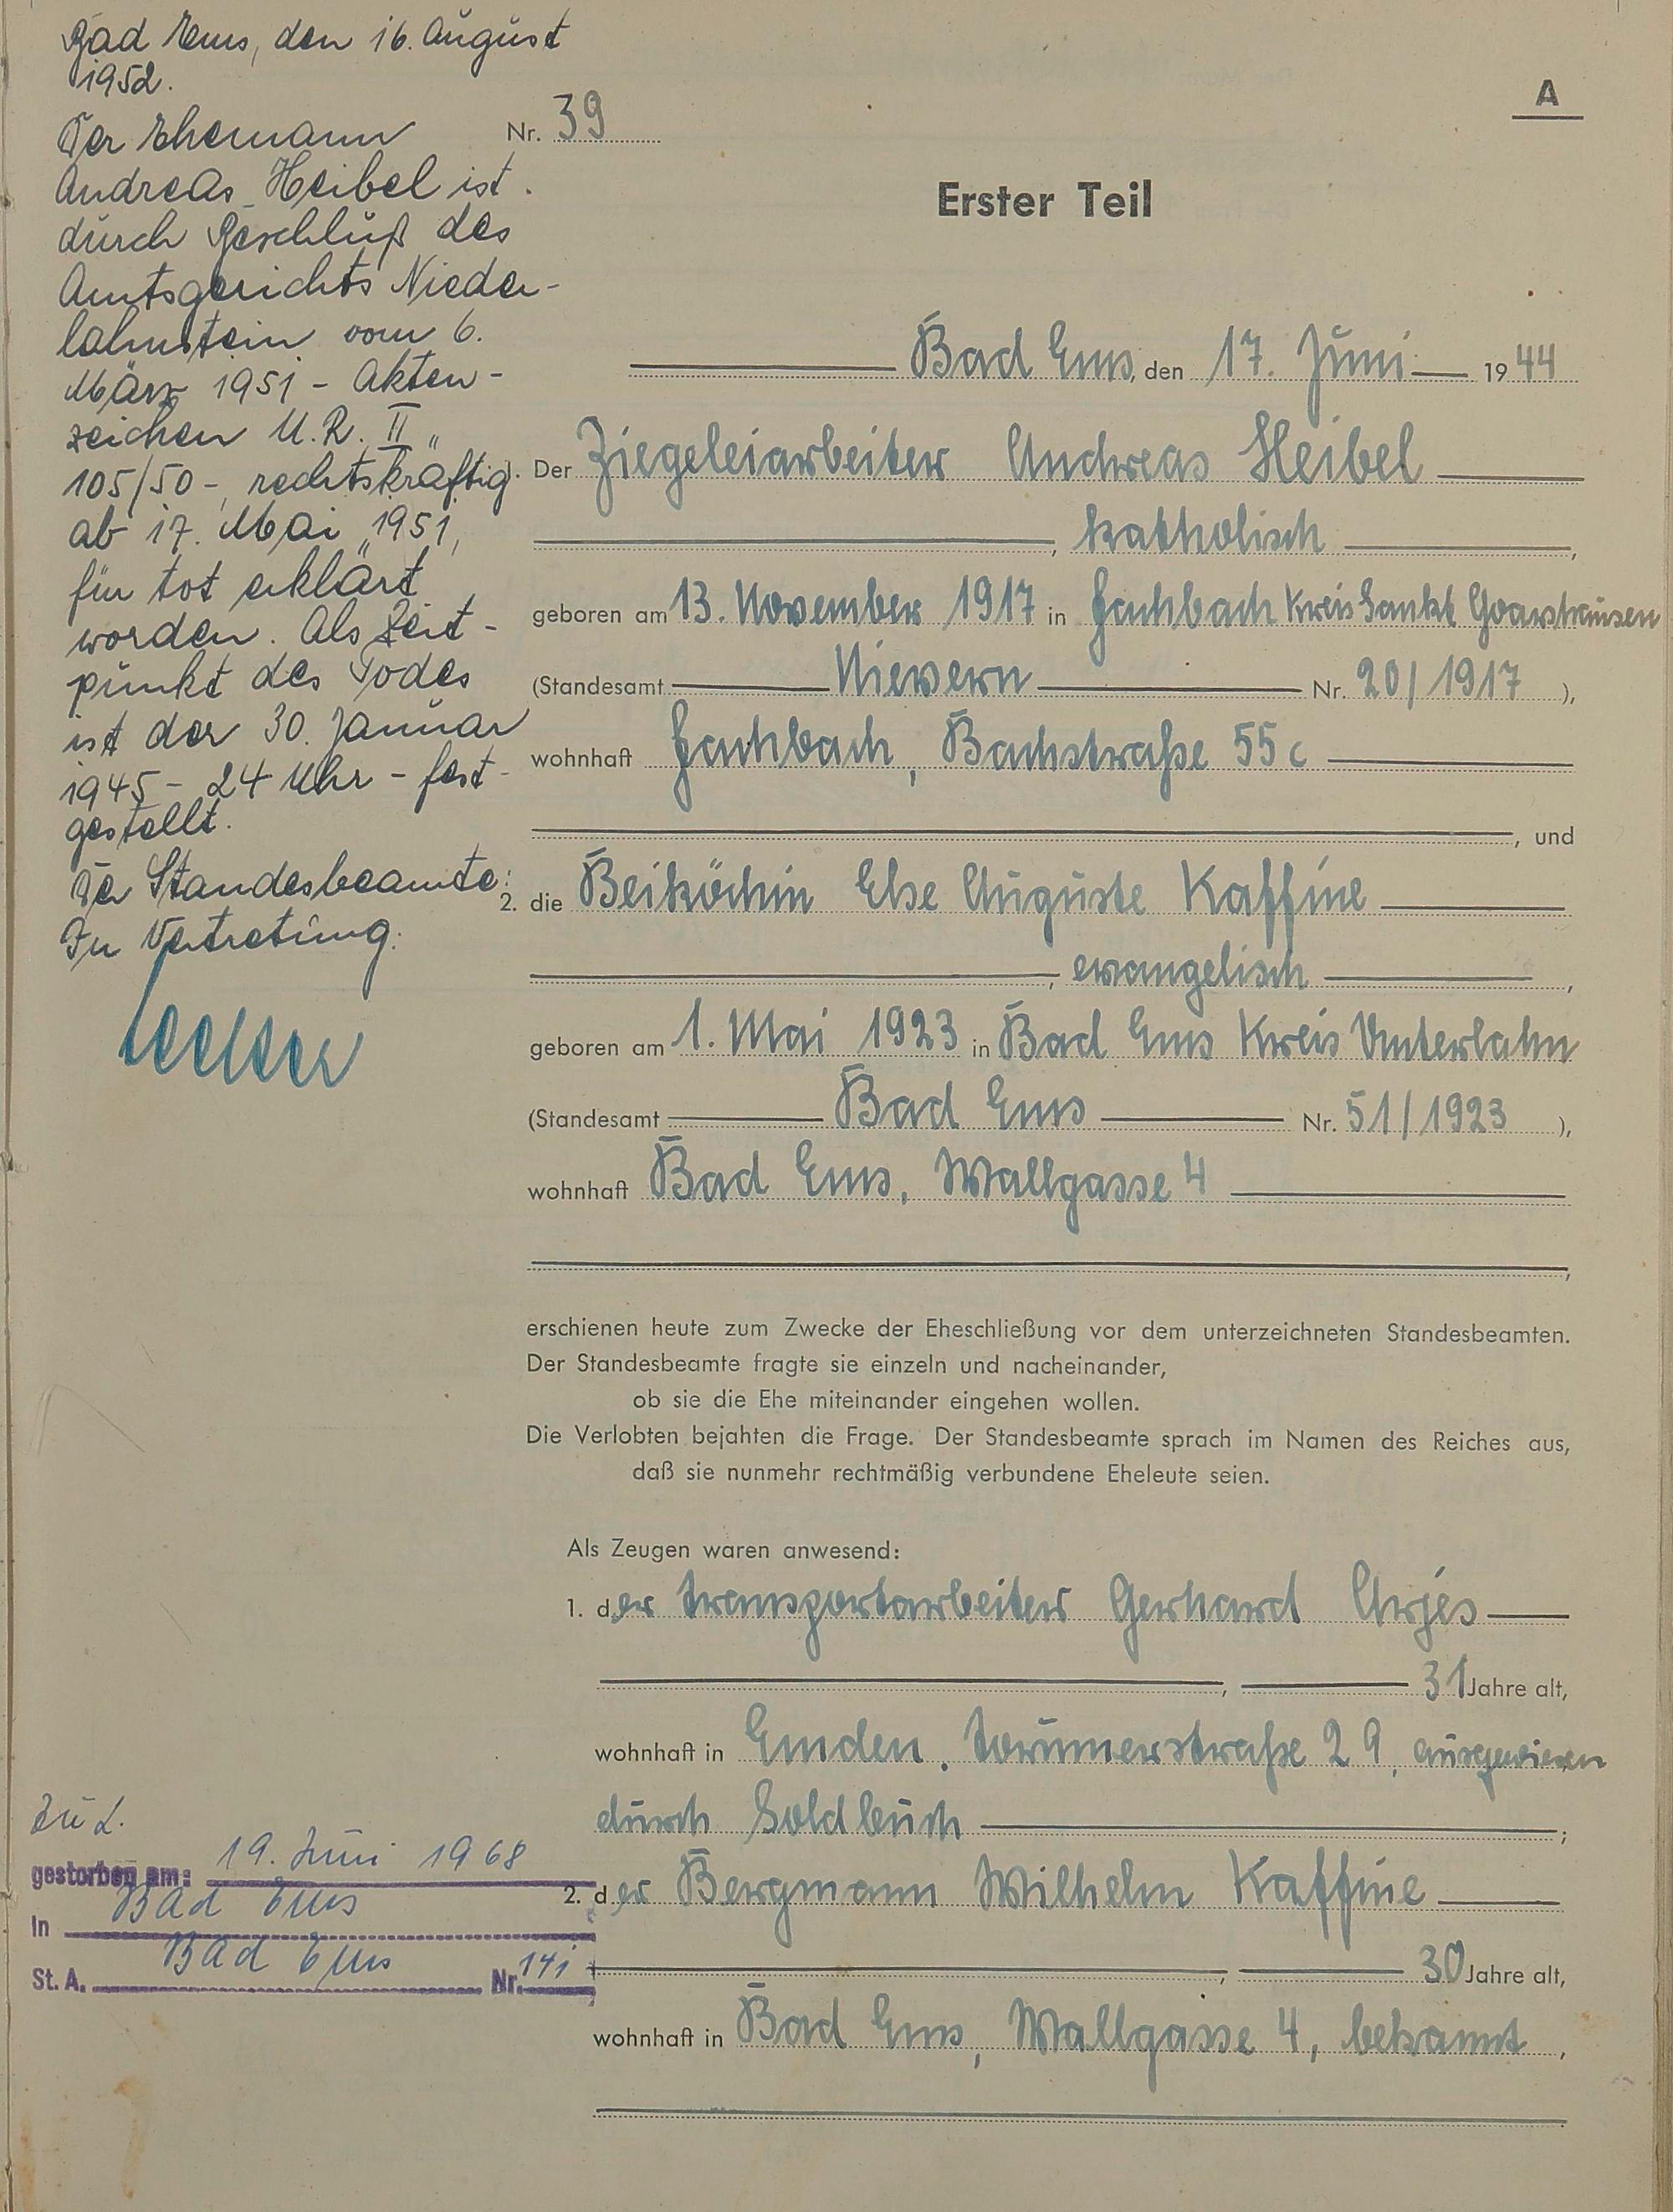 Bad Ems, den 16. August
1952.
Der Ehemann
Andreas Heibel ist
durch Beschluß des
Amtsgerichts Nieder-
lahnstein vom 6.
März 1951 - Akten-
zeichen U.R. II
105/50 -, rechtskräftig
ab 17. Mai 1951,
für tot erklärt
worden. Als Zeit-
punkt des Todes
ist der 30. Januar
1945 - 24 Uhr - fest-
gestellt.
Der Standesbeamte:
In Vertretung:
A
Nr. 39
Erster Teil
Bad Ems, den 17. Juni 1944
1. Der Ziegeleiarbeiter Andreas Heibel
, katholisch,
geboren am 13. November 1917 in Fachbach Kreis Sankt Goarshausen
(Standesamt Nievern Nr. 20/1917),
wohnhaft Fachbach, Bachstraße 55c
, und
2. die Beiköchin Else Auguste Kaffine
, evangelisch,
geboren am 1. Mai 1923 in Bad Ems Kreis Unterlahn
(Standesamt Bad Ems Nr. 51/1923),
wohnhaft Bad Ems, Wallgasse 4
,
erschienen heute zum Zwecke der Eheschließung vor dem unterzeichneten Standesbeamten.
Der Standesbeamte fragte sie einzeln und nacheinander,
ob sie die Ehe miteinander eingehen wollen.
Die Verlobten bejahten die Frage. Der Standesbeamte sprach im Namen des Reiches aus,
daß sie nunmehr rechtmäßig verbundene Eheleute seien.
Als Zeugen waren anwesend:
1. der Transportarbeiter Gerhard Arjes
, 31 Jahre alt,
wohnhaft in Emden, 29, ausgewiesen
durch Soldbuch;
2. der Bergmann Wilhelm Kaffine
, 30 Jahre alt,
wohnhaft in Bad Ems, Wallgasse 4, bekannt,
Zu 2.
gestorben am: 19. Juni 1968
In Bad Ems
St. A. Bad Ems Nr. 141